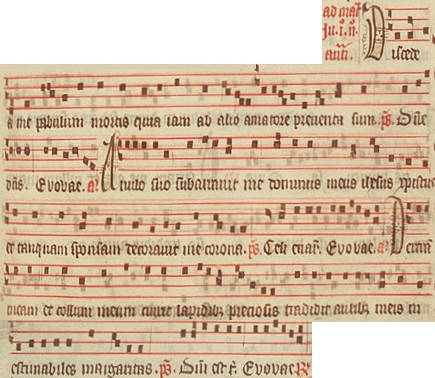 ad mat̄
Ju. i. n̄.
an̄. Discede
a me pabulum mortis quia iam ab alio amatore preventa sum. ps. Dn̄e
dn̄s. Evovae. a. Anulo suo subarravit me dominus meus ihesus xpistus
et tanquam sponsam decoravit me corona. ps. Celi enar̄. Evovae. a. Dextram
meam et collum meum cinxit lapidibz preciosis tradidit auribz meis in
estimabiles margaritas. ps. Dn̄i est t̄. Evovae